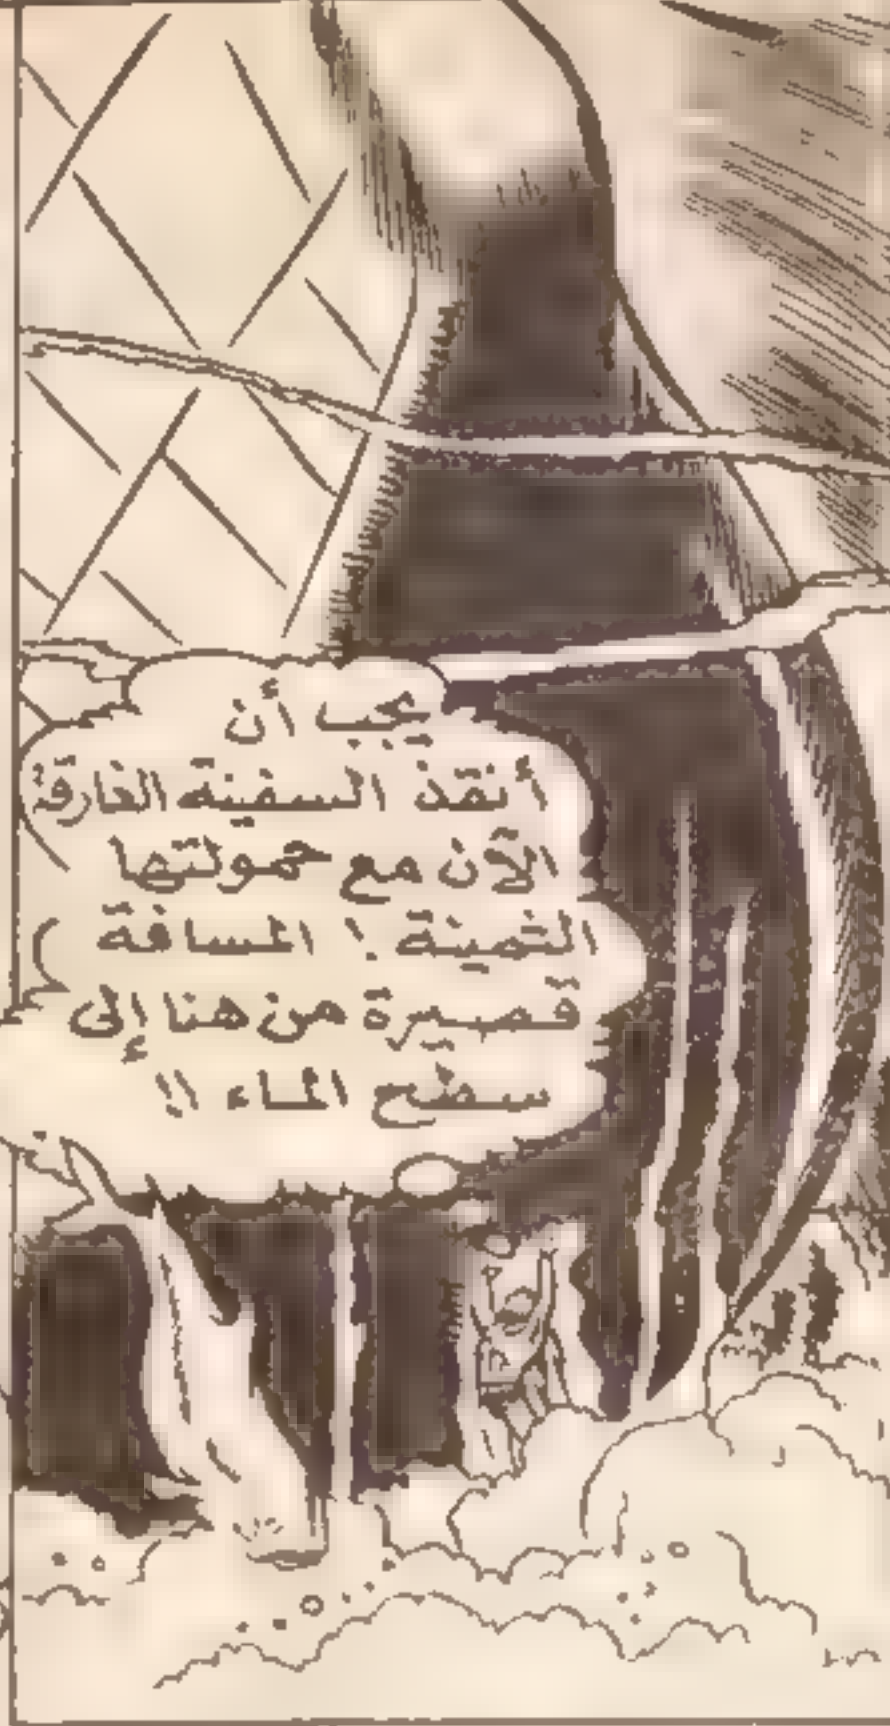 يجب أن
أنقذ السفينة الغارقة
الآن مع حمولتها
الثمينة ! المسافة
قصيرة من هنا إلى
سطح الماء !!